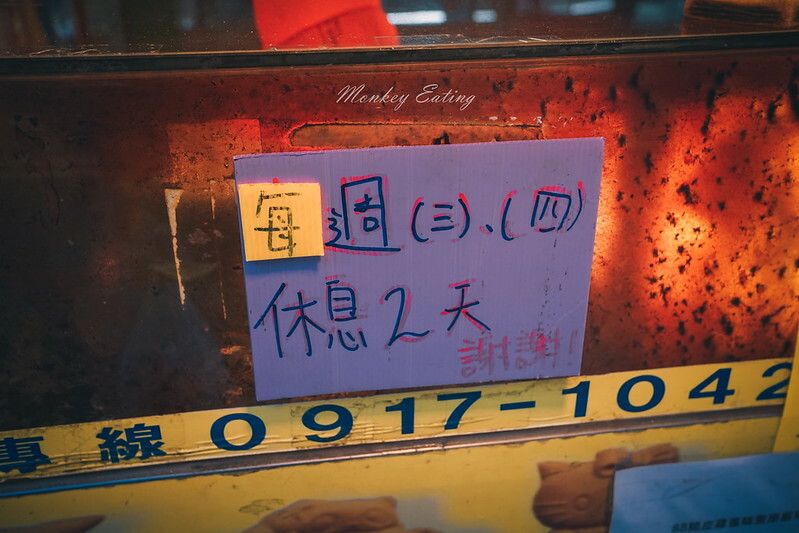 Monkey Eating
每週(三)、(四)
休息2天
謝謝!
專線 0917-1042